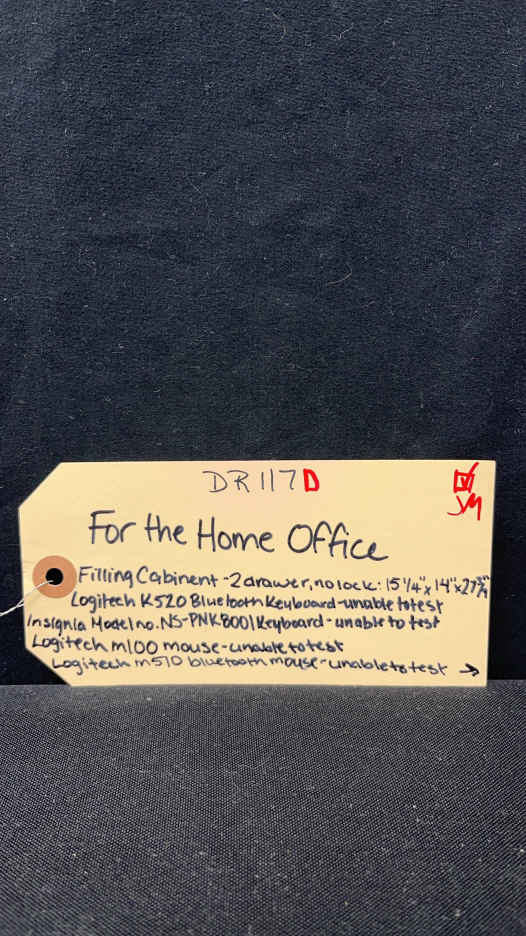 DR117D
JM
For the Home Office
Filling Cabinent - 2 drawer, no lock: 15 1/4" x 14" x 27 3/4"
Logitech K520 Bluetooth Keyboard - unable to test
Insignia Model no. NS-PNK8001 Keyboard - unable to test
Logitech m100 mouse - unable to test
Logitech m510 bluetooth mouse - unable to test →